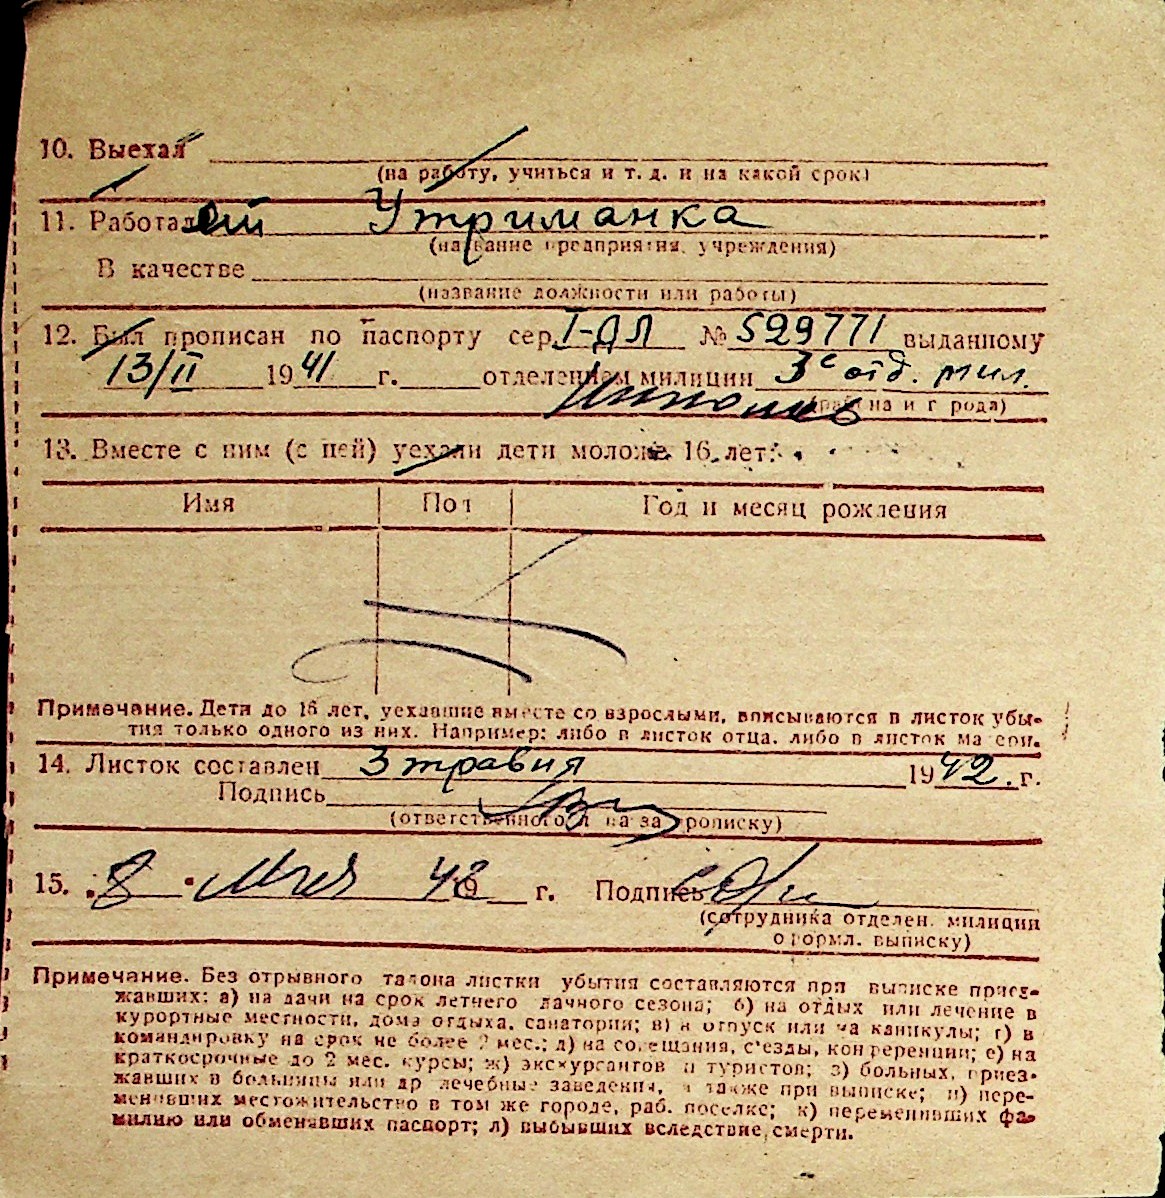 10. Выехал
(на работу, учиться и т. д. и на какой срок)
11. Работал Утриманка
(название предприятия, учреждения)
В качестве
(название должности или работы)
12. Был прописан по паспорту сер. I-ДЛ № 529771 выданному
13/II 1941 г. отделением милиции 3е отд. мил.
(района и города)
13. Вместе с ним (с ней) уехали дети моложе 16 лет:
Имя Пол Год и месяц рождения
Примечание. Дети до 16 лет, уехавшие вместе со взрослыми, вписываются в листок убы-
тия только одного из них. Например: либо в листок отца, либо в листок матери.
14. Листок составлен 3 травня 1942. г.
Подпись
(ответственного за прописку)
15. "8" Мая 42 г. Подпись
(сотрудника отделен. милиции
оформл. выписку)
Примечание. Без отрывного талона листки убытия составляются при выписке приез-
жавших: а) на дачи на срок летнего дачного сезона; б) на отдых или лечение в
курортные местности, дома отдыха, санатории; в) в отпуск или на каникулы; г) в
командировку на срок не более 2 мес.; д) на совещания, с'езды, конференции; е) на
краткосрочные до 2 мес. курсы; ж) экскурсантов и туристов; з) больных, приез-
жавших в больницы или др лечебные заведения, а также при выписке; и) пере-
менивших местожительство в том же городе, раб. поселке; к) переменивших фа-
милию или обменявших паспорт; л) выбывших вследствие смерти.